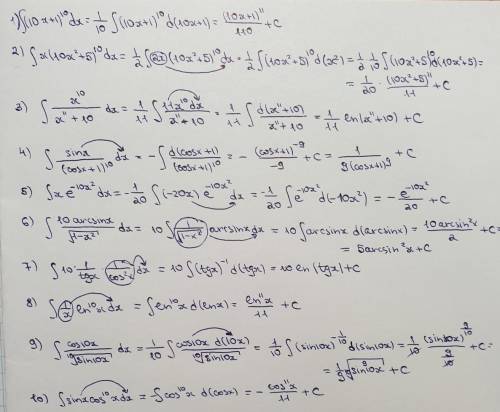 1) ∫(10x+1)¹⁰dx = 1/10 ∫(10x+1)¹⁰ d(10x+1) = (10x+1)¹¹/110 + C
2) ∫x(10x²+5)¹⁰dx = 1/2 ∫2x(10x²+5)¹⁰dx = 1/2 ∫(10x²+5)¹⁰ d(x²) = 1/2 · 1/10 ∫(10x²+5)¹⁰ d(10x²+5) =
= 1/20 · (10x²+5)¹¹/11 + C
3) ∫ x¹⁰/(x¹¹+10) dx = 1/11 ∫ 11x¹⁰dx/(x¹¹+10) = 1/11 ∫ d(x¹¹+10)/(x¹¹+10) = 1/11 ln(x¹¹+10) + C
4) ∫ sinx/(cosx+1)¹⁰ dx = -∫ d(cosx+1)/(cosx+1)¹⁰ = - (cosx+1)⁻⁹/-9 + C = 1/9(cosx+1)⁹ + C
5) ∫x e^(-10x²)dx = -1/20 ∫(-20x) e^(-10x²)dx = -1/20 ∫e^(-10x²) d(-10x²) = - e^(-10x²)/20 + C
6) ∫ 10arcsinx/√(1-x²) dx = 10 ∫ 1/√(1-x²) arcsinx dx = 10 ∫arcsinx d(arcsinx) = 10arcsin²x/2 + C =
= 5arcsin²x + C
7) ∫10 · 1/tgx · 1/cos²x dx = 10 ∫(tgx)⁻¹ d(tgx) = 10 ln(tgx) + C
8) ∫ 1/x ln¹⁰x dx = ∫ln¹⁰x d(lnx) = ln¹¹x/11 + C
9) ∫ cos10x/¹⁰√sin10x dx = 1/10 ∫ cos10x d(10x)/¹⁰√sin10x = 1/10 ∫(sin10x)^(-1/10) d(sin10x) = 1/10 (sin10x)^(9/10)/(9/10) + C =
= 1/9 ¹⁰√sin⁹10x + C
10) ∫sinxcos¹⁰x dx = -∫cos¹⁰x d(cosx) = - cos¹¹x/11 + C